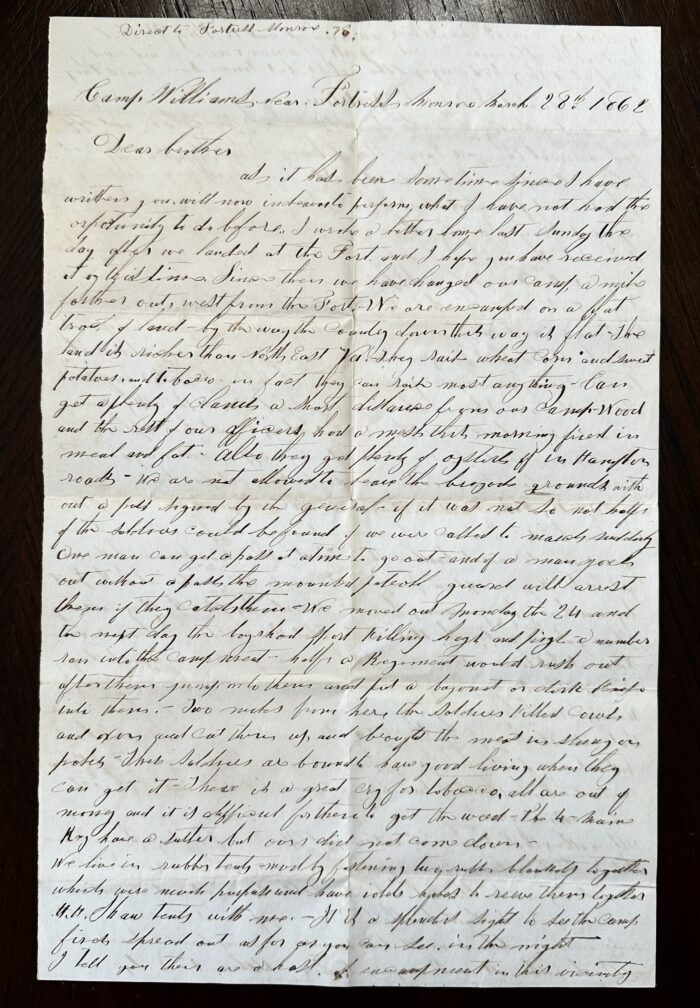 Direct to Fortress Monroe. Va.
Camp Williams, near Fortress Monroe March 28th 1862
Dear brother
as it has been sometime since I have
written you will now indeavor to perform, what I have not had the
oportunity to do before. I wrote a letter home last Sunday the
day after we landed at the Fort. and I hope you have received
it by this time. Since then we have changed our camp a mile
farther out, west from the Fort. We are encamped on a flat
tract of land - by the way the country down this way is flat - The
land is richer than North East Va. They raise wheat corn and sweet
potatoes and tobacco - in fact they can raise most anything - Can
get a plenty of clams a short distance from our camp - Wood
and the rest of our officers had a mess this morning fried in
meal and fat - Also they get plenty of oysters off in Hampton
roads - We are not allowed to leave the brigade grounds with
out a pass signed by the general - if it was not so not half
of the soldiers could be found if we were called to march suddenly
One man can get a pass at a time to go out - and if a man goes
out without a pass the mounted guard will arrest
them if they catch them - We moved out Monday the 24 and
the next day the boys had sport killing hogs and pigs - a number
ran into the campment - half a Regiment would rush out
after them jump onto them and put a bayonet or dirk knife
into them. - Two miles from here, the soldiers killed cows
and oxen and cut them up, and brought the meat in slung on
poles - These soldiers are bound to have good living when they
can get it - There is a great cry for tobacco, all are out of
money and it is difficult for them to get the weed - The 4 Maine
Reg have a sutler but ours did not come down -
We live in rubber tents mostly by fastening two rubber blankets together
which were made purpose and have holes to reeve them together
Shaw tents with me. - It is a splendid sight to see the camp
fires spread out as far as you can see, in the night
I tell you their are a host of encampment in this vicinity